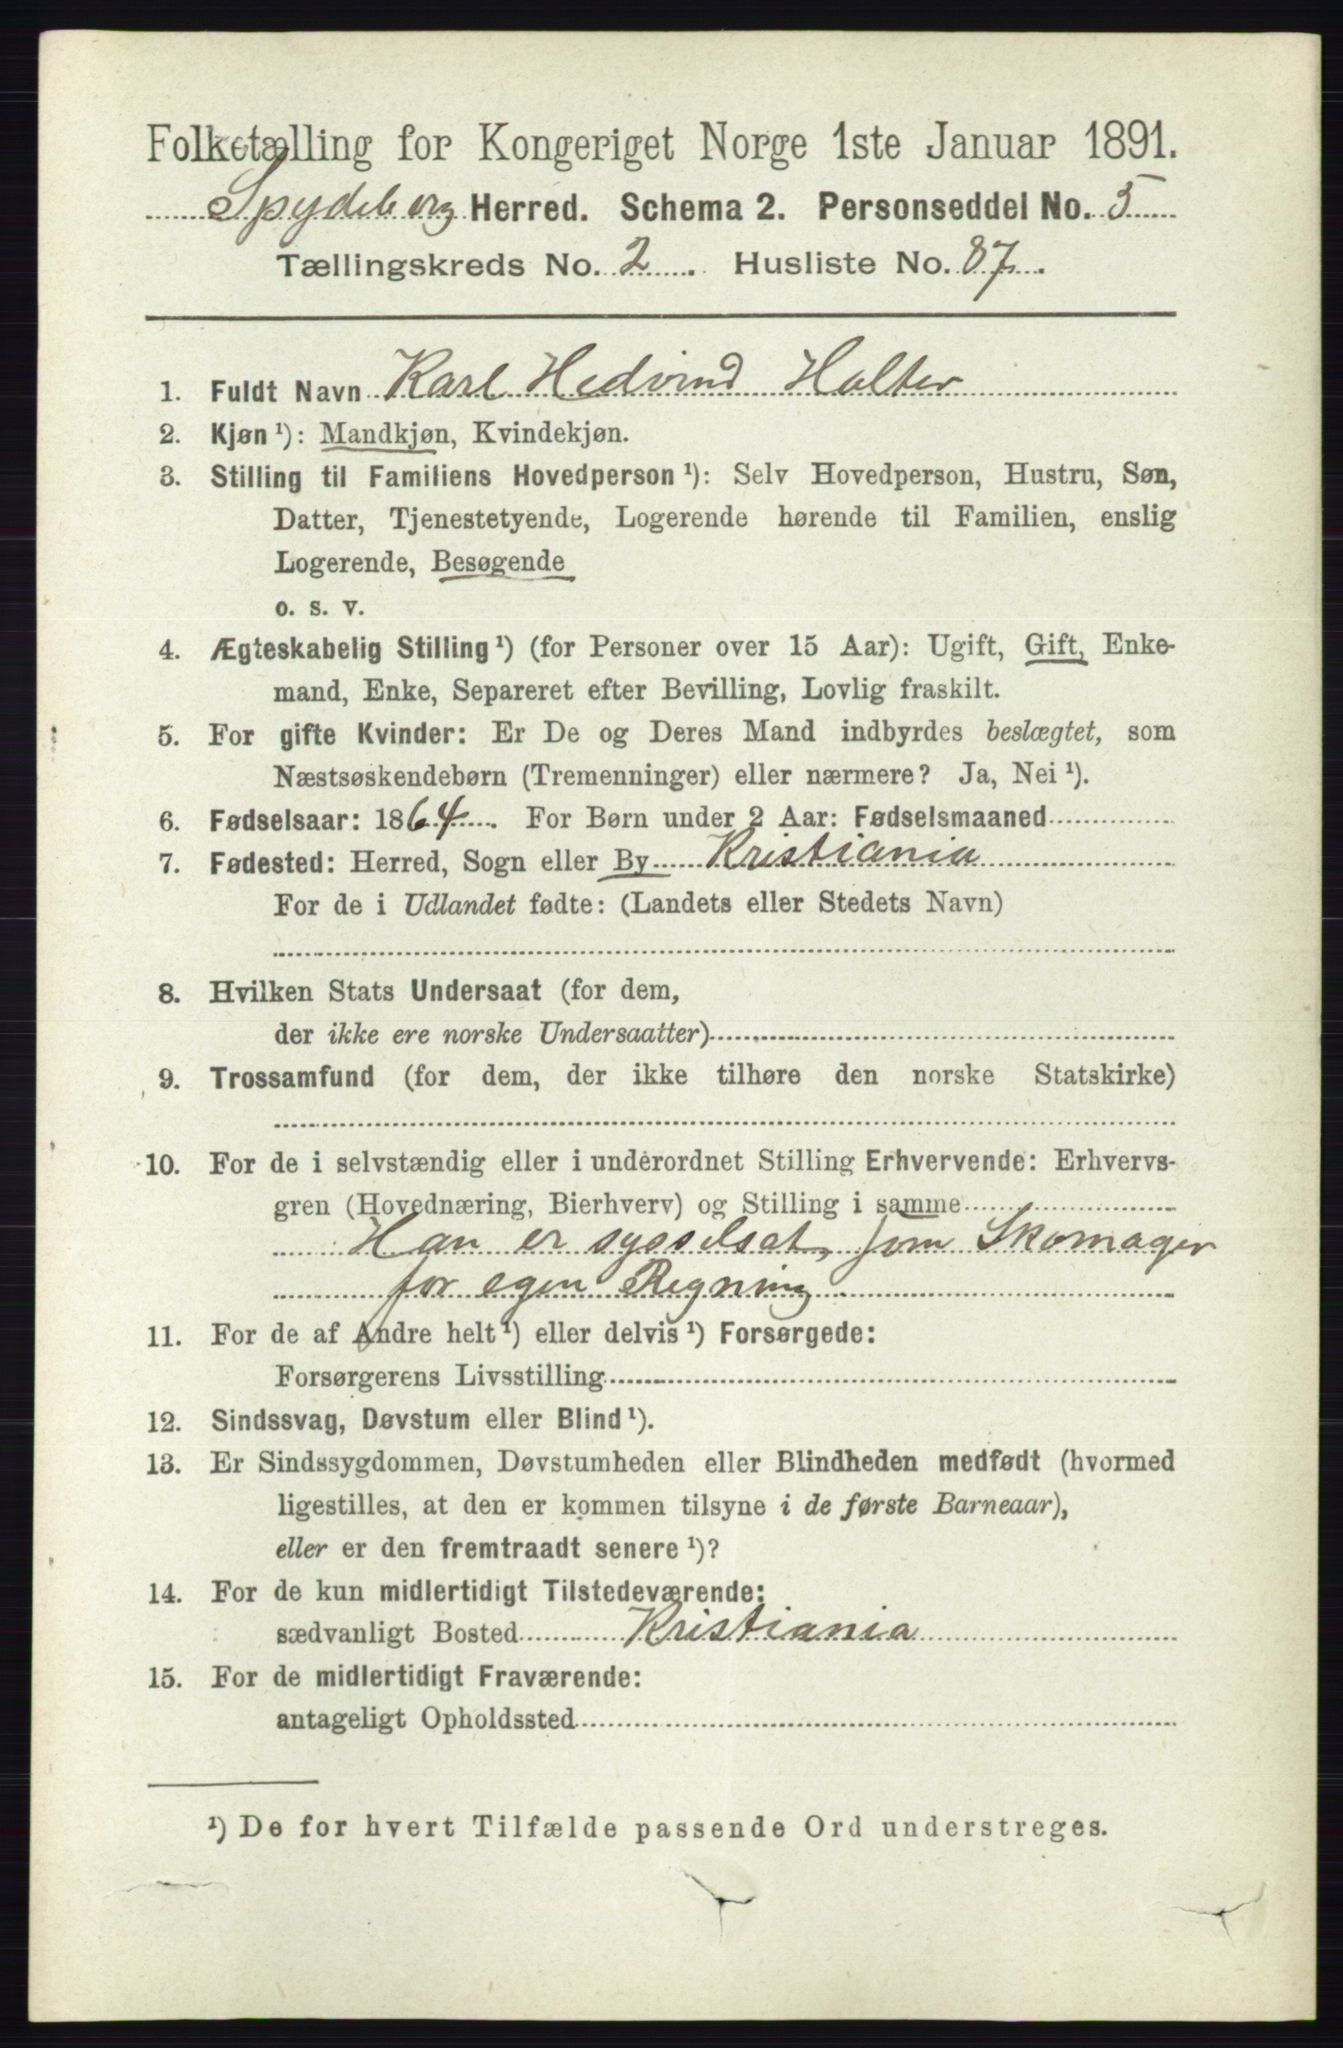 Folketælling for Kongeriget Norge 1ste Januar 1891.
Spydeberg Herred. Schema 2. Personseddel No. 5
Tællingskreds No. 2. Husliste No. 87.
1. Fuldt Navn Karl Hedvind Holter
2. Kjøn ¹): Mandkjøn, Kvindekjøn.
3. Stilling til Familiens Hovedperson ¹): Selv Hovedperson, Hustru, Søn,
Datter, Tjenestetyende, Logerende hørende til Familien, enslig
Logerende, Besøgende
o. s. v.
4. Ægteskabelig Stilling ¹) (for Personer over 15 Aar): Ugift, Gift, Enke-
mand, Enke, Separeret efter Bevilling, Lovlig fraskilt.
5. For gifte Kvinder: Er De og Deres Mand indbyrdes beslægtet, som
Næstsøskendebørn (Tremenninger) eller nærmere? Ja, Nei ¹).
6. Fødselsaar: 1864. For Børn under 2 Aar: Fødselsmaaned
7. Fødested: Herred, Sogn eller By Kristiania
For de i Udlandet fødte: (Landets eller Stedets Navn)
8. Hvilken Stats Undersaat (for dem,
der ikke ere norske Undersaatter)
9. Trossamfund (for dem, der ikke tilhøre den norske Statskirke)
10. For de i selvstændig eller i underordnet Stilling Erhvervende: Erhvervs-
gren (Hovednæring, Bierhverv) og Stilling i samme
Han er sysselsat, som Skomager
for egen Regning
11. For de af Andre helt ¹) eller delvis ¹) Forsørgede:
Forsørgerens Livsstilling
12. Sindssvag, Døvstum eller Blind ¹).
13. Er Sindssygdommen, Døvstumheden eller Blindheden medfødt (hvormed
ligestilles, at den er kommen tilsyne i de første Barneaar),
eller er den fremtraadt senere ¹)?
14. For de kun midlertidigt Tilstedeværende:
sædvanligt Bosted Kristiania
15. For de midlertidigt Fraværende:
antageligt Opholdssted
¹) De for hvert Tilfælde passende Ord understreges.